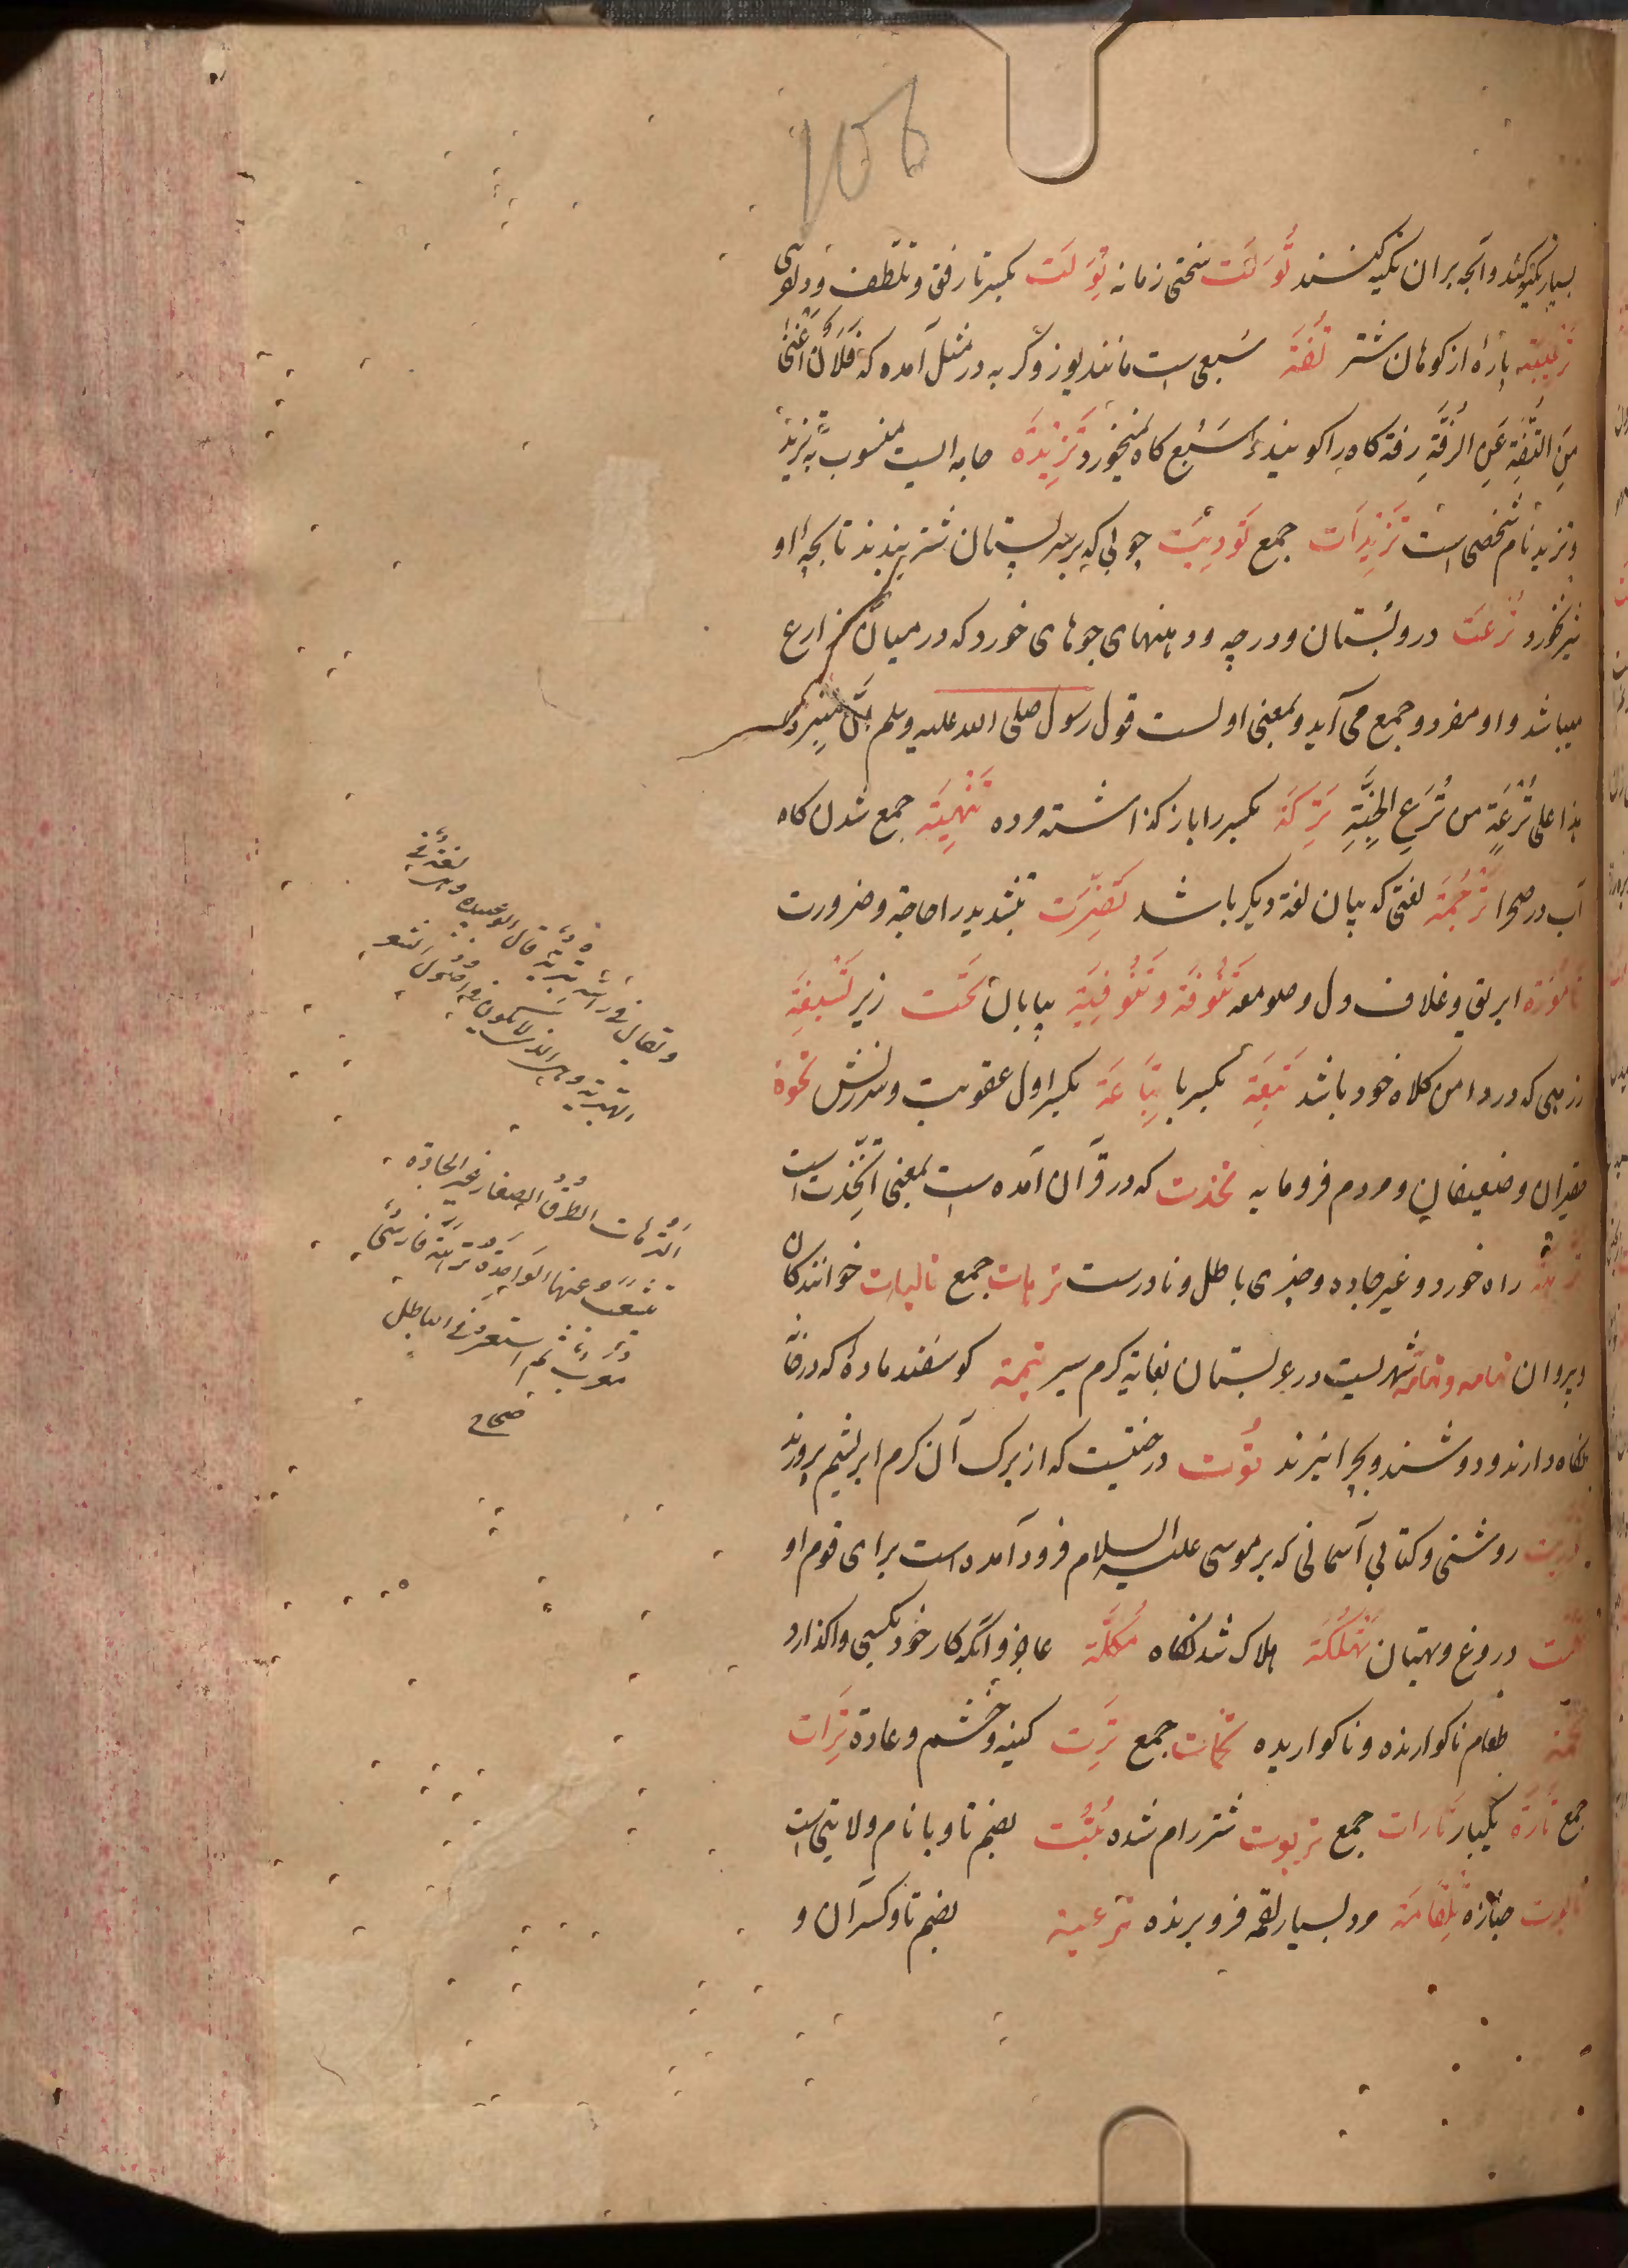 106
بسیار تکیه کند و آنچه بران تکیه کنند تُوَلَت سختی زمانه تِوَلَت بکسر تا رفق و تلطف و دلوی
تَرعیبَه پارۀ از کوهان شتر تُفَه سَبعی است مانند یوز و کربه در مثل آمده که فُلَانٌ اَغْنیٰ
مِنَ التُّفَةِ عَنِ الرُّفَّةِ رفة کاه را کویند ءسَبُع کاه نمیخورد تَزِیْدیّه جامه ایست منسوب بتزید
و تزید نام شخصی است تَزِیْدِیَات جمع تَوْدِیَت چوبی که بر سر پستان شتر بندند تا بچه او
شیر نخورد تُرْعَت در و بُستان و درجه و دهنهای جوهای خورد که در میان مزارع
میباشد و او مفرد و جمع می آید و بمعنی اولست قول رسول صلی الله علیه وسلم اِنَّ مِنبری
هذا علی تُرْعَةٍ من تُرَعِ الجَنَّةِ تَرِکَه بکسر را باز کذاشته مرده تَنْهِیَه جمع شدن کاه
آب در صحرا تَرْجُمَه لغتی که بیان لغة دیکر باشد تَضِرَّت بتشدید را حاجة و ضرورت
تَامُوْرَة ابریق و غلاف دل و صومعه تَنُوْفَه وَتَنُوْفِیَّه بیابان تَحْت زیر تَسْبِغَه
زرهی که در دامن کلاه خود باشد تَبِعَه بکسر با تِبَاعَه بکسر اول عقوبت و سرزنش تحوة
فقیران و ضعیفان و مردم فرومایه تخذت که در قرآن آمده است بمعنی اتَّخَذْت است
تُرّهَه راه خورد و غیر جاده و چیزی باطل و نادرست ترهات جمع تالیات خوانندکان
و پیروان تهامه و تهامَه شهریست در عربستان بغایة کرم سیر تیمَة کوسفند مادۀ که در خانه
نکاه دارند و دوشند و بچرا نبرند تُوت درختیست که از برک آن کرم ابریشم پرورند
توریت روشنی و کتابی آسمانی که بر موسی علیه السلام فرود آمده است برای قوم او
تهمت دروغ و بهتان تَهْلُکَه هلاک شدنکاه تُکَلَة عاجز و آنکه کار خود بکسی واکذارد
تخمَه طعام ناکوارنده و ناکواریده تخمات جمع تِرَت کینه و خشم و عادة تِرَات
جمع تَارَة یکبار تَارَات جمع تربوت شتر رام شده تُبُّت بضم تا و با نام ولایتی است
تابوت جنازه تِلِقَّامَة مرد بسیار لقمه فرو برنده ترعیة بضم تا و کسر آن و
ویقال فی رأسه تبریة قال ابو عبیده وهی لغة فی
الهبریة وهی الذی یکون فی اصول الشعر
التُّرَّهَات الطُرُقُ الصغار غیر الجادّة
تتشعب عنها الواحِدَة تُرَّهَة فارسی
معرب ثم استعیر فی الباطل
صحاح